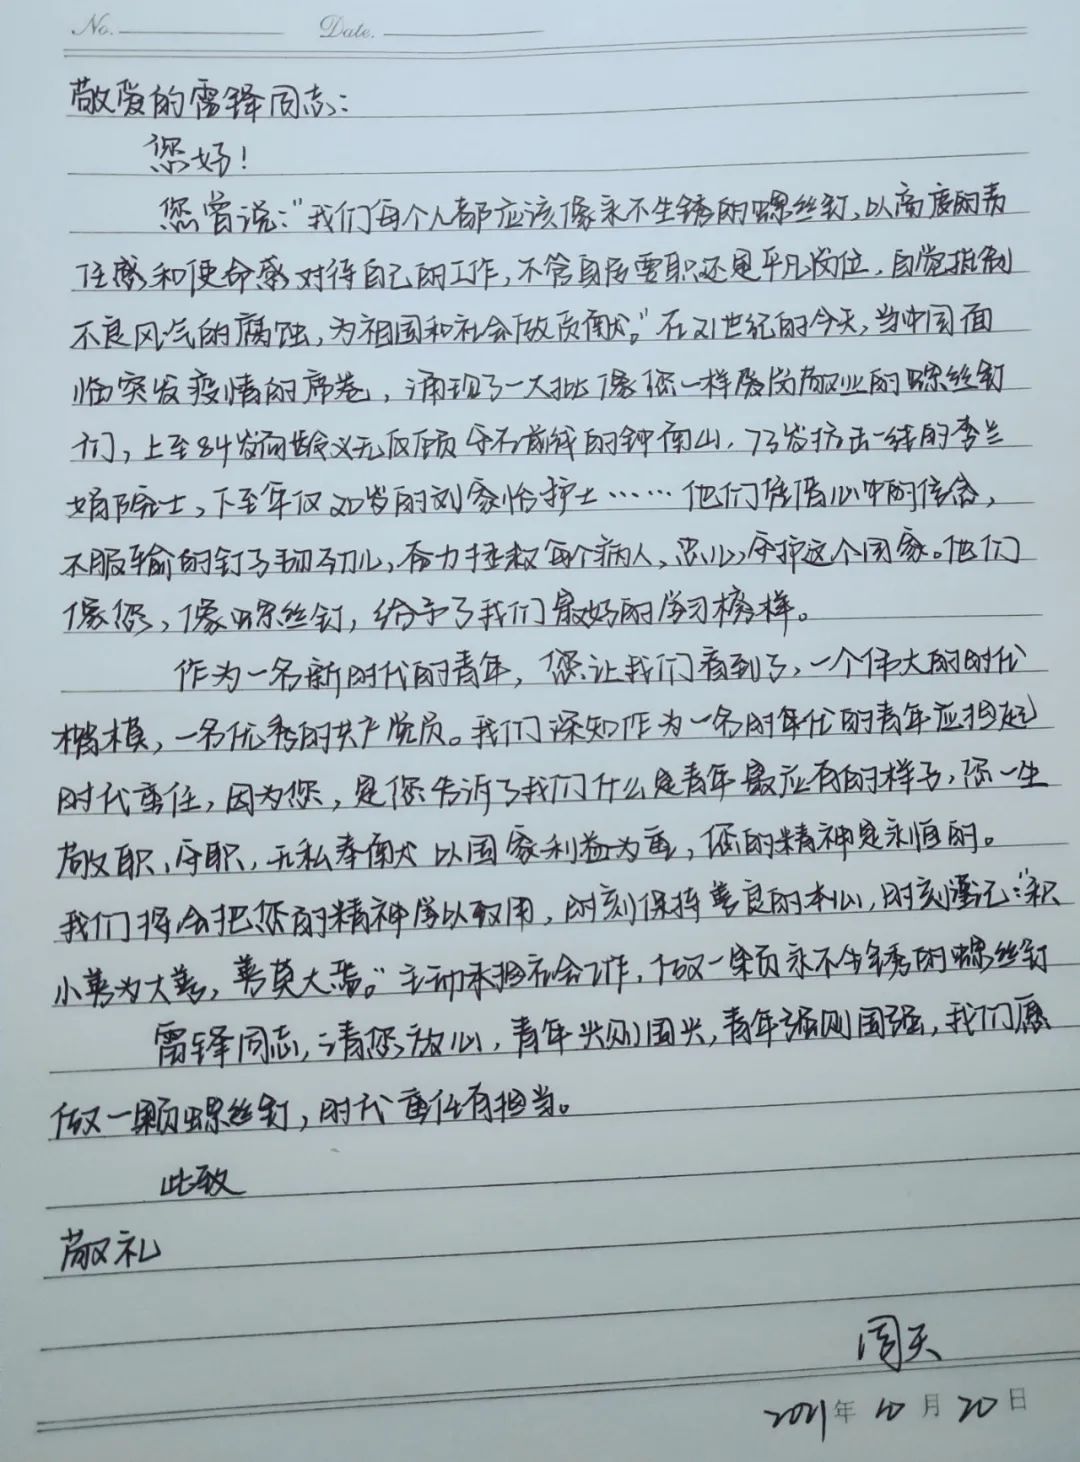 No. Date.
敬爱的雷锋同志：
您好！
您曾说：“我们每个人都应该像永不生锈的螺丝钉，以高度的责
任感和使命感对待自己的工作，不管身居要职还是平凡岗位，自觉抵制
不良风气的腐蚀，为祖国和社会做贡献。”在21世纪的今天，当中国面
临突发疫情的席卷，涌现了一大批像您一样爱岗敬业的螺丝钉
们，上至84岁高龄义无反顾守在前线的钟南山，73岁抗击一线的李兰
娟院士，下至年仅20岁的刘家怡护士……他们凭借心中的信念，
不服输的钉子韧劲儿，奋力拯救每个病人，忠心守护这个国家。他们
像您，像螺丝钉，给予了我们最好的学习榜样。
作为一名新时代的青年，您让我们看到了，一个伟大的时代
楷模，一名优秀的共产党员。我们深知作为一名时年代的青年应担起
时代重任，因为您，是您告诉了我们什么是青年最应有的样子，您一生
敬职，守职，无私奉献以国家利益为重，您的精神是永恒的。
我们将会把您的精神学以致用，时刻保持善良的本心，时刻谨记：“积
小善为大善，善莫大焉。”主动承担社会工作，做一颗永不生锈的螺丝钉
雷锋同志，请您放心，青年兴则国兴，青年强则国强，我们愿
做一颗螺丝钉，时代重任有担当。
此致
敬礼
周天
2021年10月20日